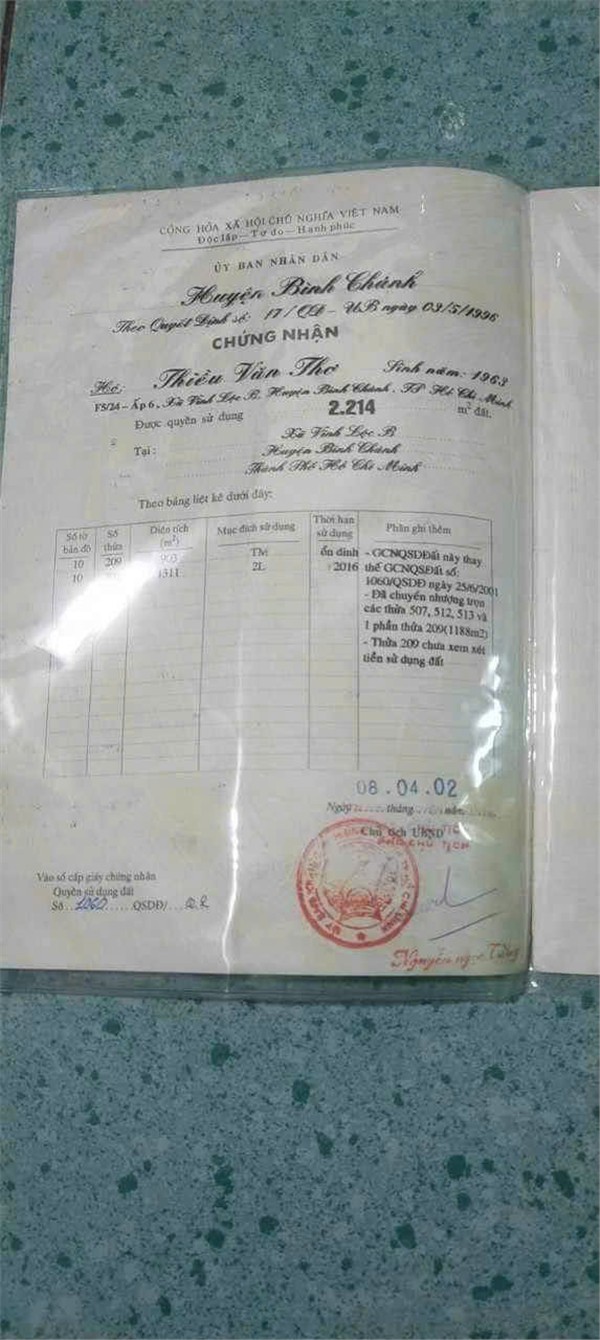 CỘNG HÒA XÃ HỘI CHỦ NGHĨA VIỆT NAM
Độc lập - Tự do - Hạnh phúc
ỦY BAN NHÂN DÂN
Huyện Bình Chánh
Theo Quyết Định số: 17/QĐ - UB ngày 03/5/1996
CHỨNG NHẬN
Hộ: Thiều Văn Thơ Sinh năm: 1963
F5/24 - Ấp 6, Xã Vĩnh Lộc B, Huyện Bình Chánh, TP Hồ Chí Minh
Được quyền sử dụng 2.214 m² đất.
Tại: Xã Vĩnh Lộc B
Huyện Bình Chánh
Thành Phố Hồ Chí Minh
Theo bảng liệt kê dưới đây:
Số tờ bản đồ Số thửa Diện tích (m²) Mục đích sử dụng Thời hạn sử dụng Phần ghi thêm
10 209 903 ổn định - GCNQSDĐất này thay
10 1311 2L 2016 thế GCNQSĐất số:
1060/QSDĐ ngày 25/6/2001
- Đã chuyển nhượng trọn
các thửa 507, 512, 513 và
1 phần thửa 209(1188m2)
- Thửa 209 chưa xem xét
tiền sử dụng đất
08.04.02
Ngày tháng năm
Chủ tịch UBND
PHÓ CHỦ TỊCH
Vào sổ cấp giấy chứng nhận
Quyền sử dụng đất
Số 1060 QSDĐ/
Nguyễn ngọc